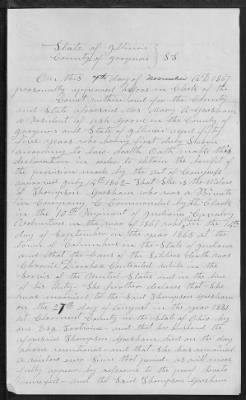 State of Illinois
County of Iroquois } SS
On this 7th day of November A.D. 1867
personally appeared before me Clerk of the
County Court within and for the County
and State aforesaid Mrs Mary A Gresham
a resident of Ash Grove in the County of
Iroquois and State of Illinois aged fifty
four years who being first duly sworn
according to law doth on oath make this
declaration in order to obtain the benefit of
the provision made by the act of Congress
approved July 14 1862. That She is the Widow
of Thompson Gresham who was a Private
in Company C Commanded by
in the 10th Regiment of Indiana Cavalry
Volunteers in the year of 1861 and on the
day of in the year 1865 at the
Town of Columbus in the State of Indiana
and that the Cause of the Soldiers Death was
Chronic Diarrhea Contracted while in the
Service of the United States and in the line
of his Duty. She further declares that She
was married to the said Thompson Gresham
on the 27th day of August in the year 1831
at Clermont County in the State of Ohio by
one Esq and that her husband the
aforesaid Thompson Gresham died on the day
above mentioned and that She has remained
a widow ever Since that period as will more
fully appear by reference to the proof hereto
annexed and the Said Thompson Gresham